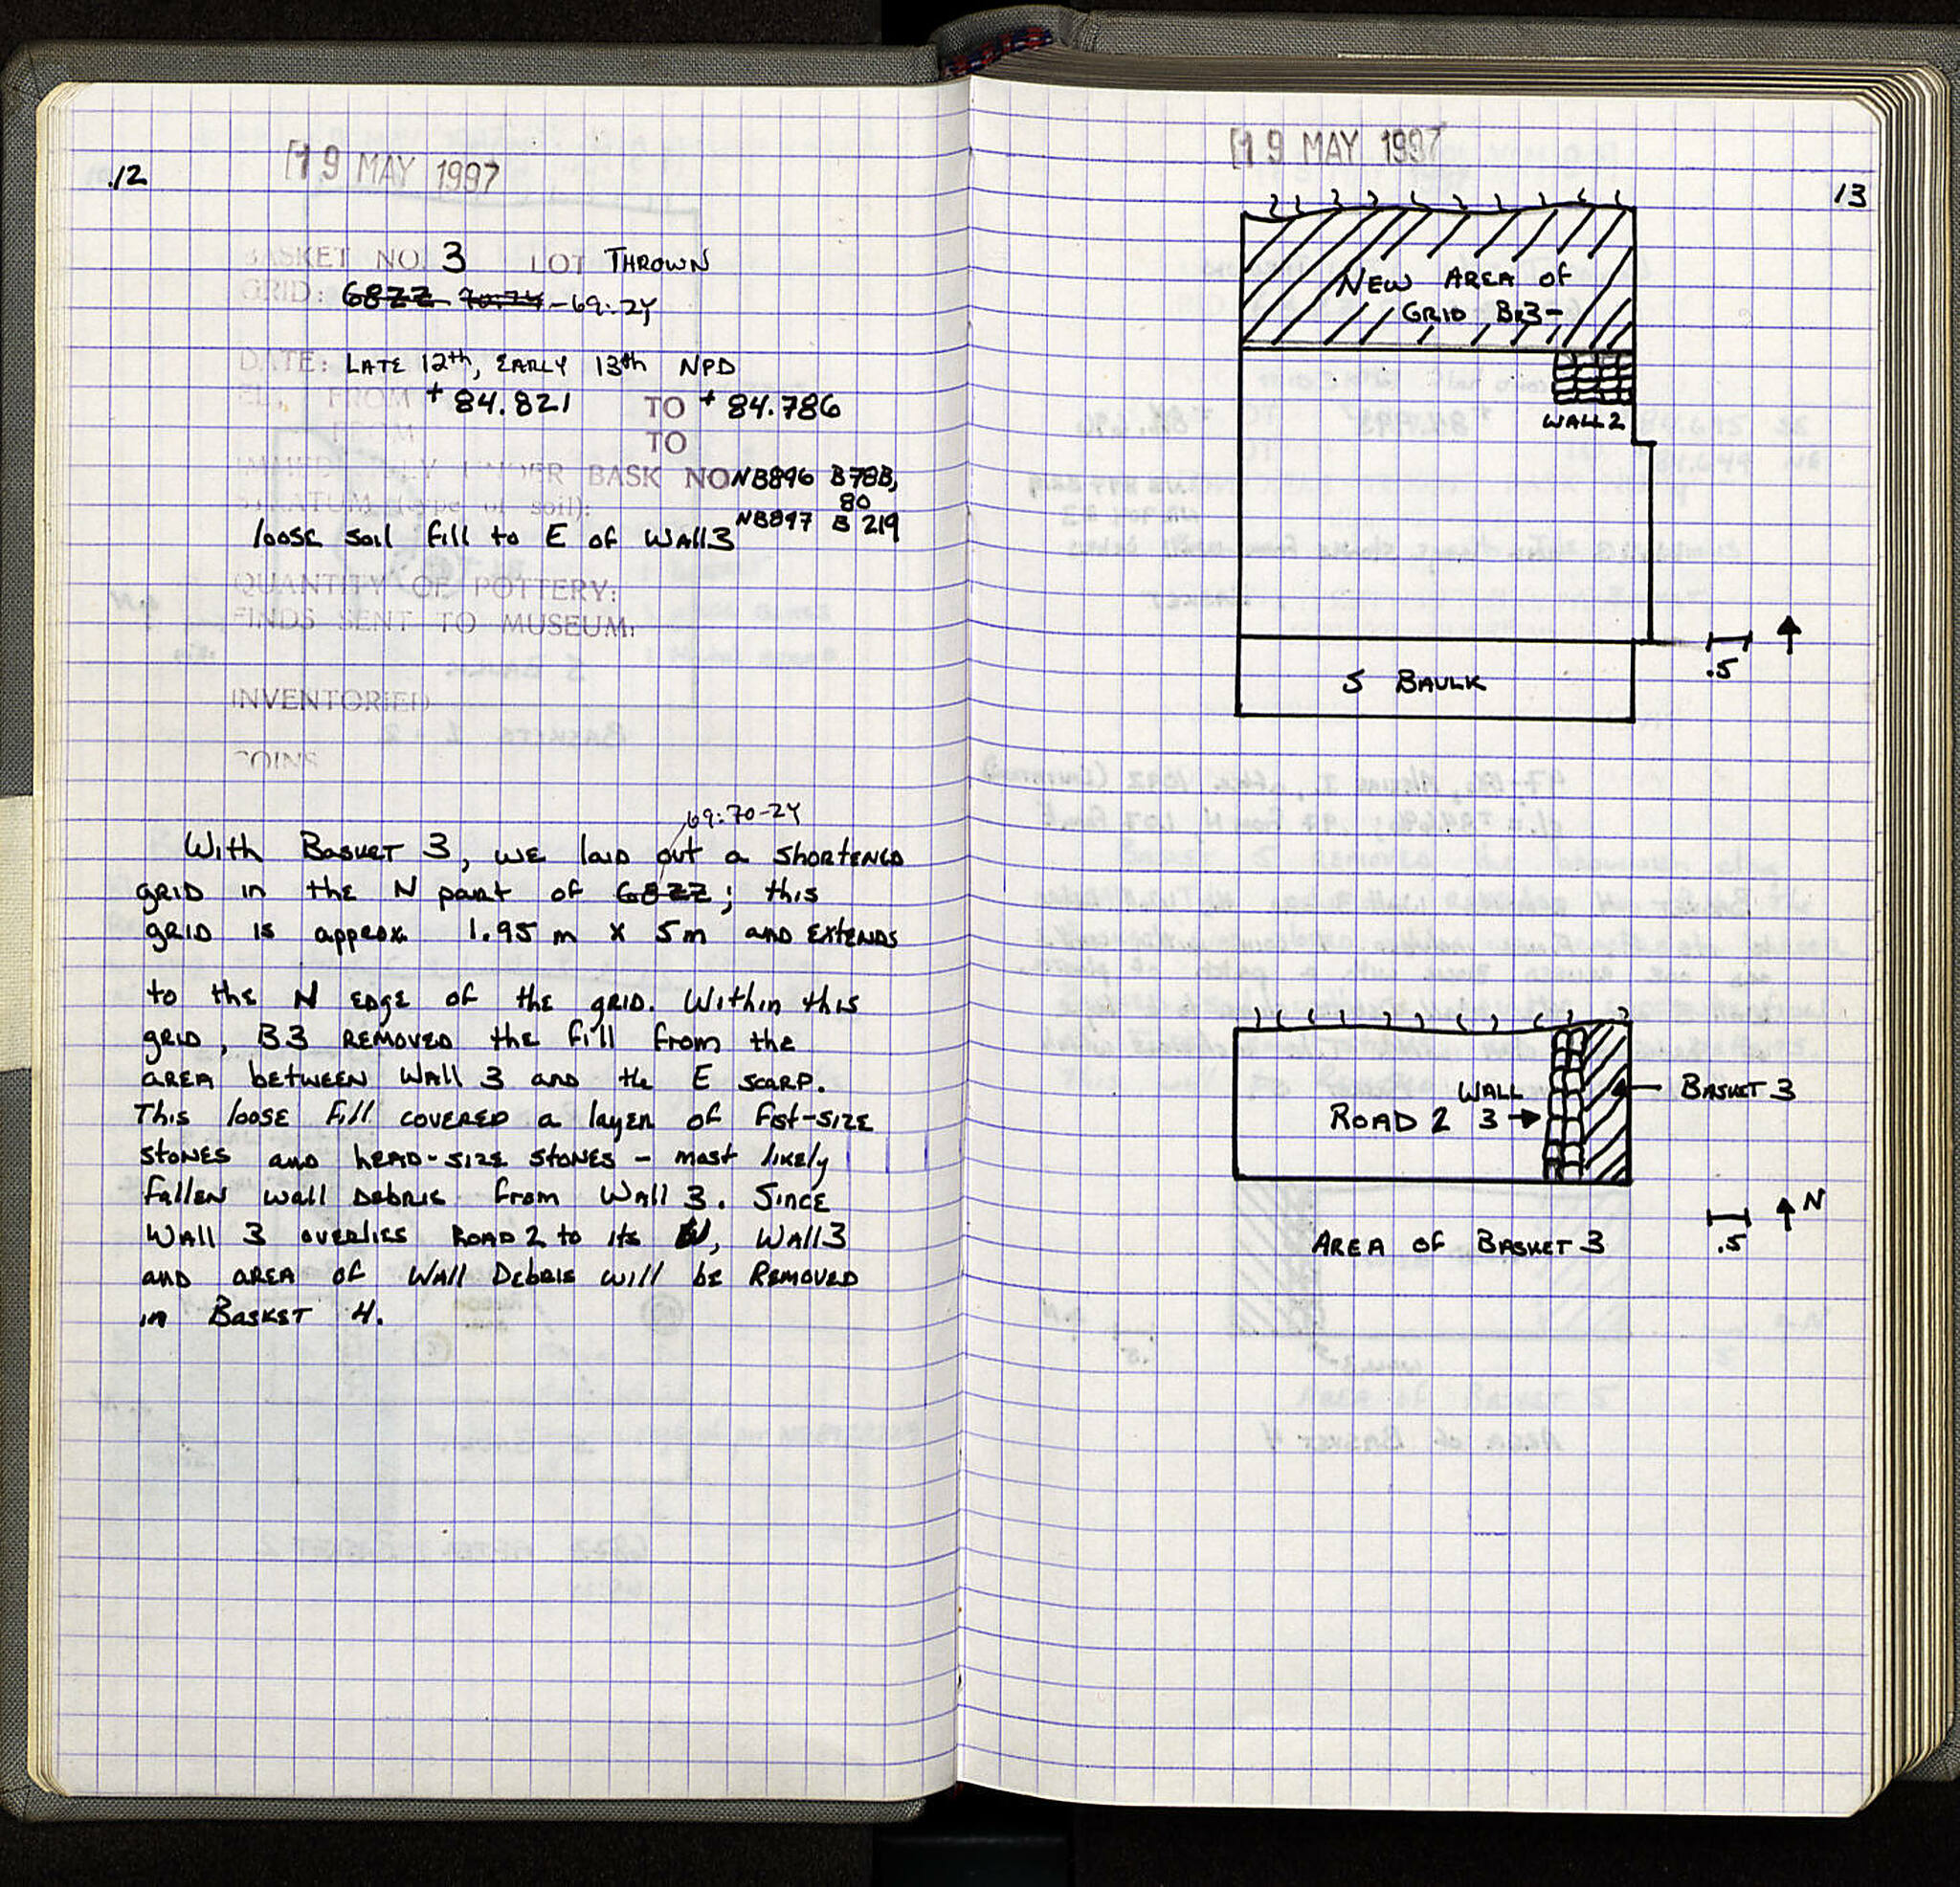 12
19 MAY 1997
BASKET NO. 3 LOT THROWN
GRID: 68ZZ 70:74 - 69:2Y
DATE: LATE 12th, EARLY 13th NPD
EL. FROM +84.821 TO +84.786
FROM TO
IMMEDIATELY UNDER BASK NO NB896 B78B,
80
STRATUM (type of soil): NB897 B 219
loose soil fill to E of Wall 3
QUANTITY OF POTTERY:
FINDS SENT TO MUSEUM:
INVENTORIED
COINS
69:70-2Y
With Basket 3, we laid out a shortened
grid in the N part of 68ZZ; this
grid is approx 1.95 m x 5m and extends
to the N edge of the grid. Within this
grid, B3 removed the fill from the
area between Wall 3 and the E scarp.
This loose fill covered a layer of fist-size
stones and head-size stones - most likely
fallen wall debris from Wall 3. Since
Wall 3 overlies Road 2 to its W, Wall 3
and area of wall debris will be removed
in Basket 4.
19 MAY 1997
13
NEW AREA OF
GRID B3-
WALL 2
S BAULK
.5
WALL
ROAD 2 3
BASKET 3
N
.5
AREA OF BASKET 3